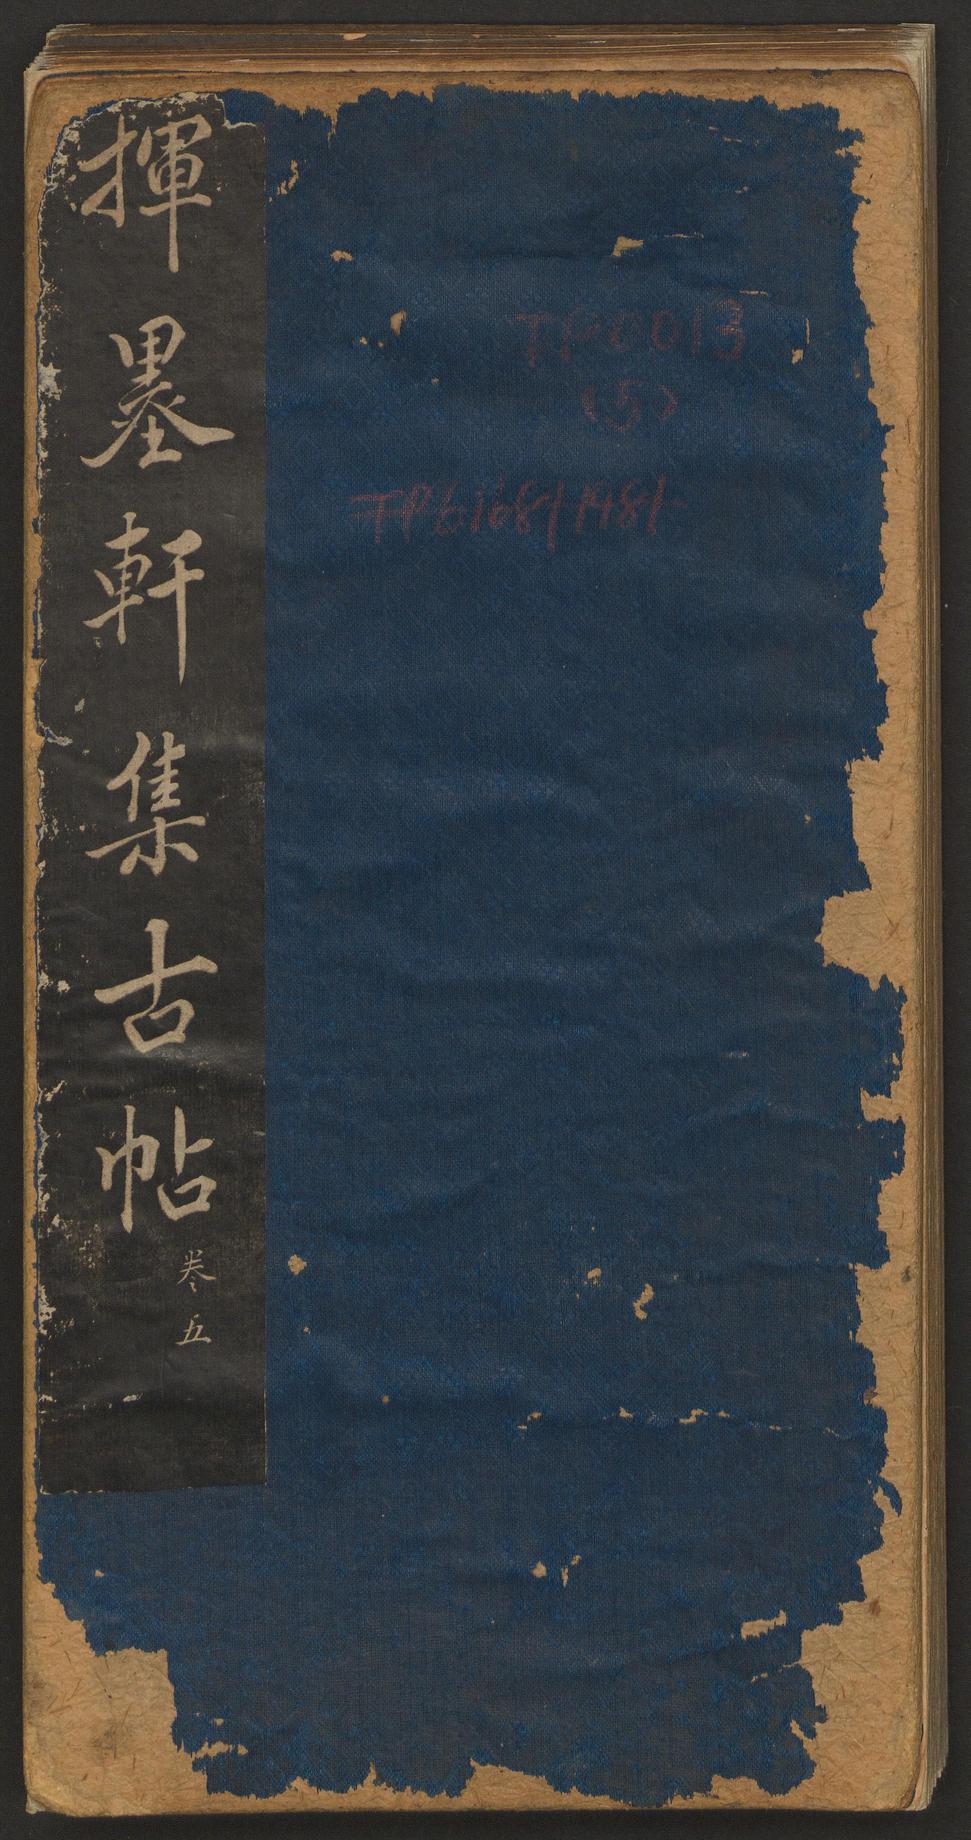 揮墨軒集古帖
卷五
TP0013
(5)